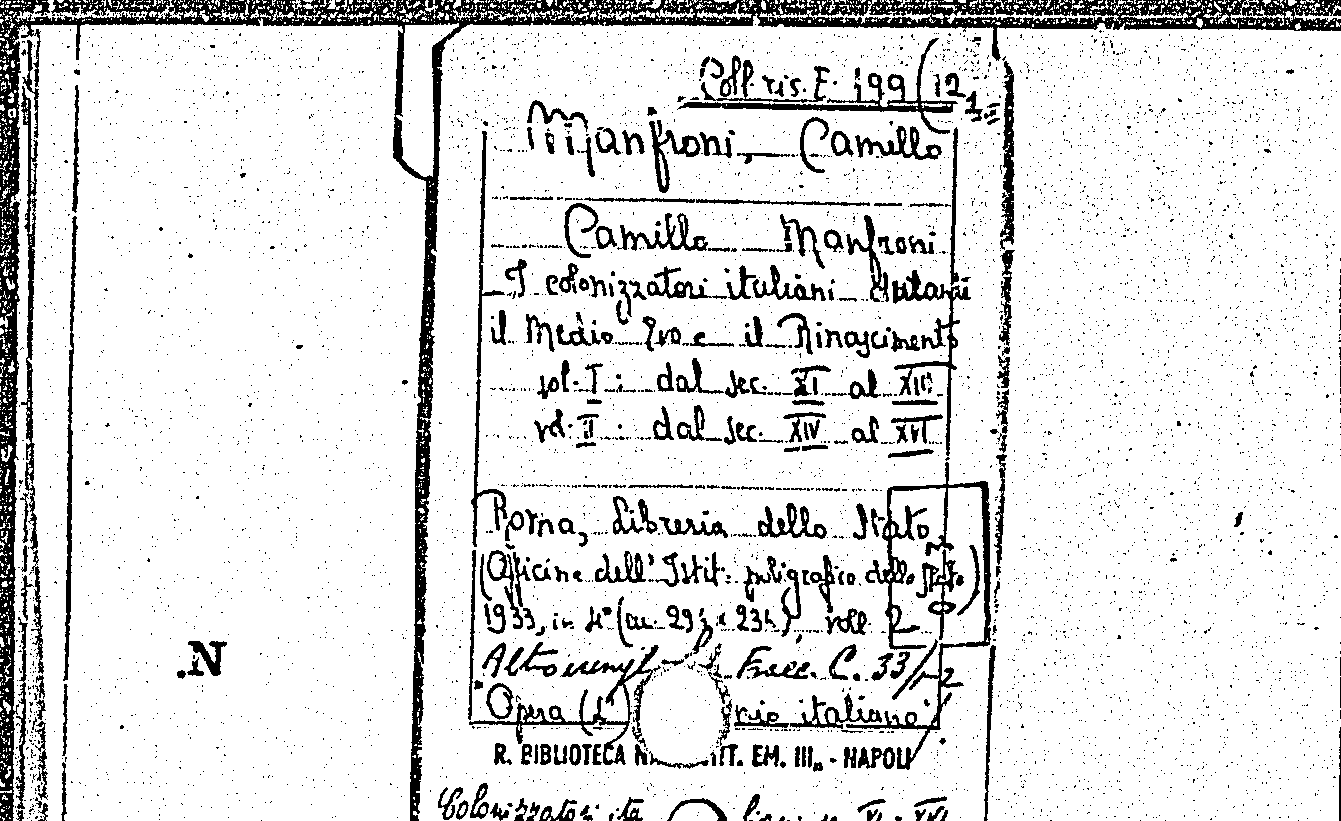 Coll. ris. E. 199 (12
1-2
Manfroni, Camillo
Camillo Manfroni
I colonizzatori italiani durante
il Medio Evo e il Rinascimento
vol. I : dal sec. XI al XIII
vol. II : dal sec. XIV al XVI
Roma, Libreria dello Stato
(Officine dell' Istit. poligrafico dello Stato)
1933, in 4° voll. 2
N.
Altro esempl. Facc. C. 33/1-2
Opera (L' rio italiano
R. BIBLIOTECA N ITT. EM. III„ - NAPOLI
Colonizzatori ita liani XI - XVI